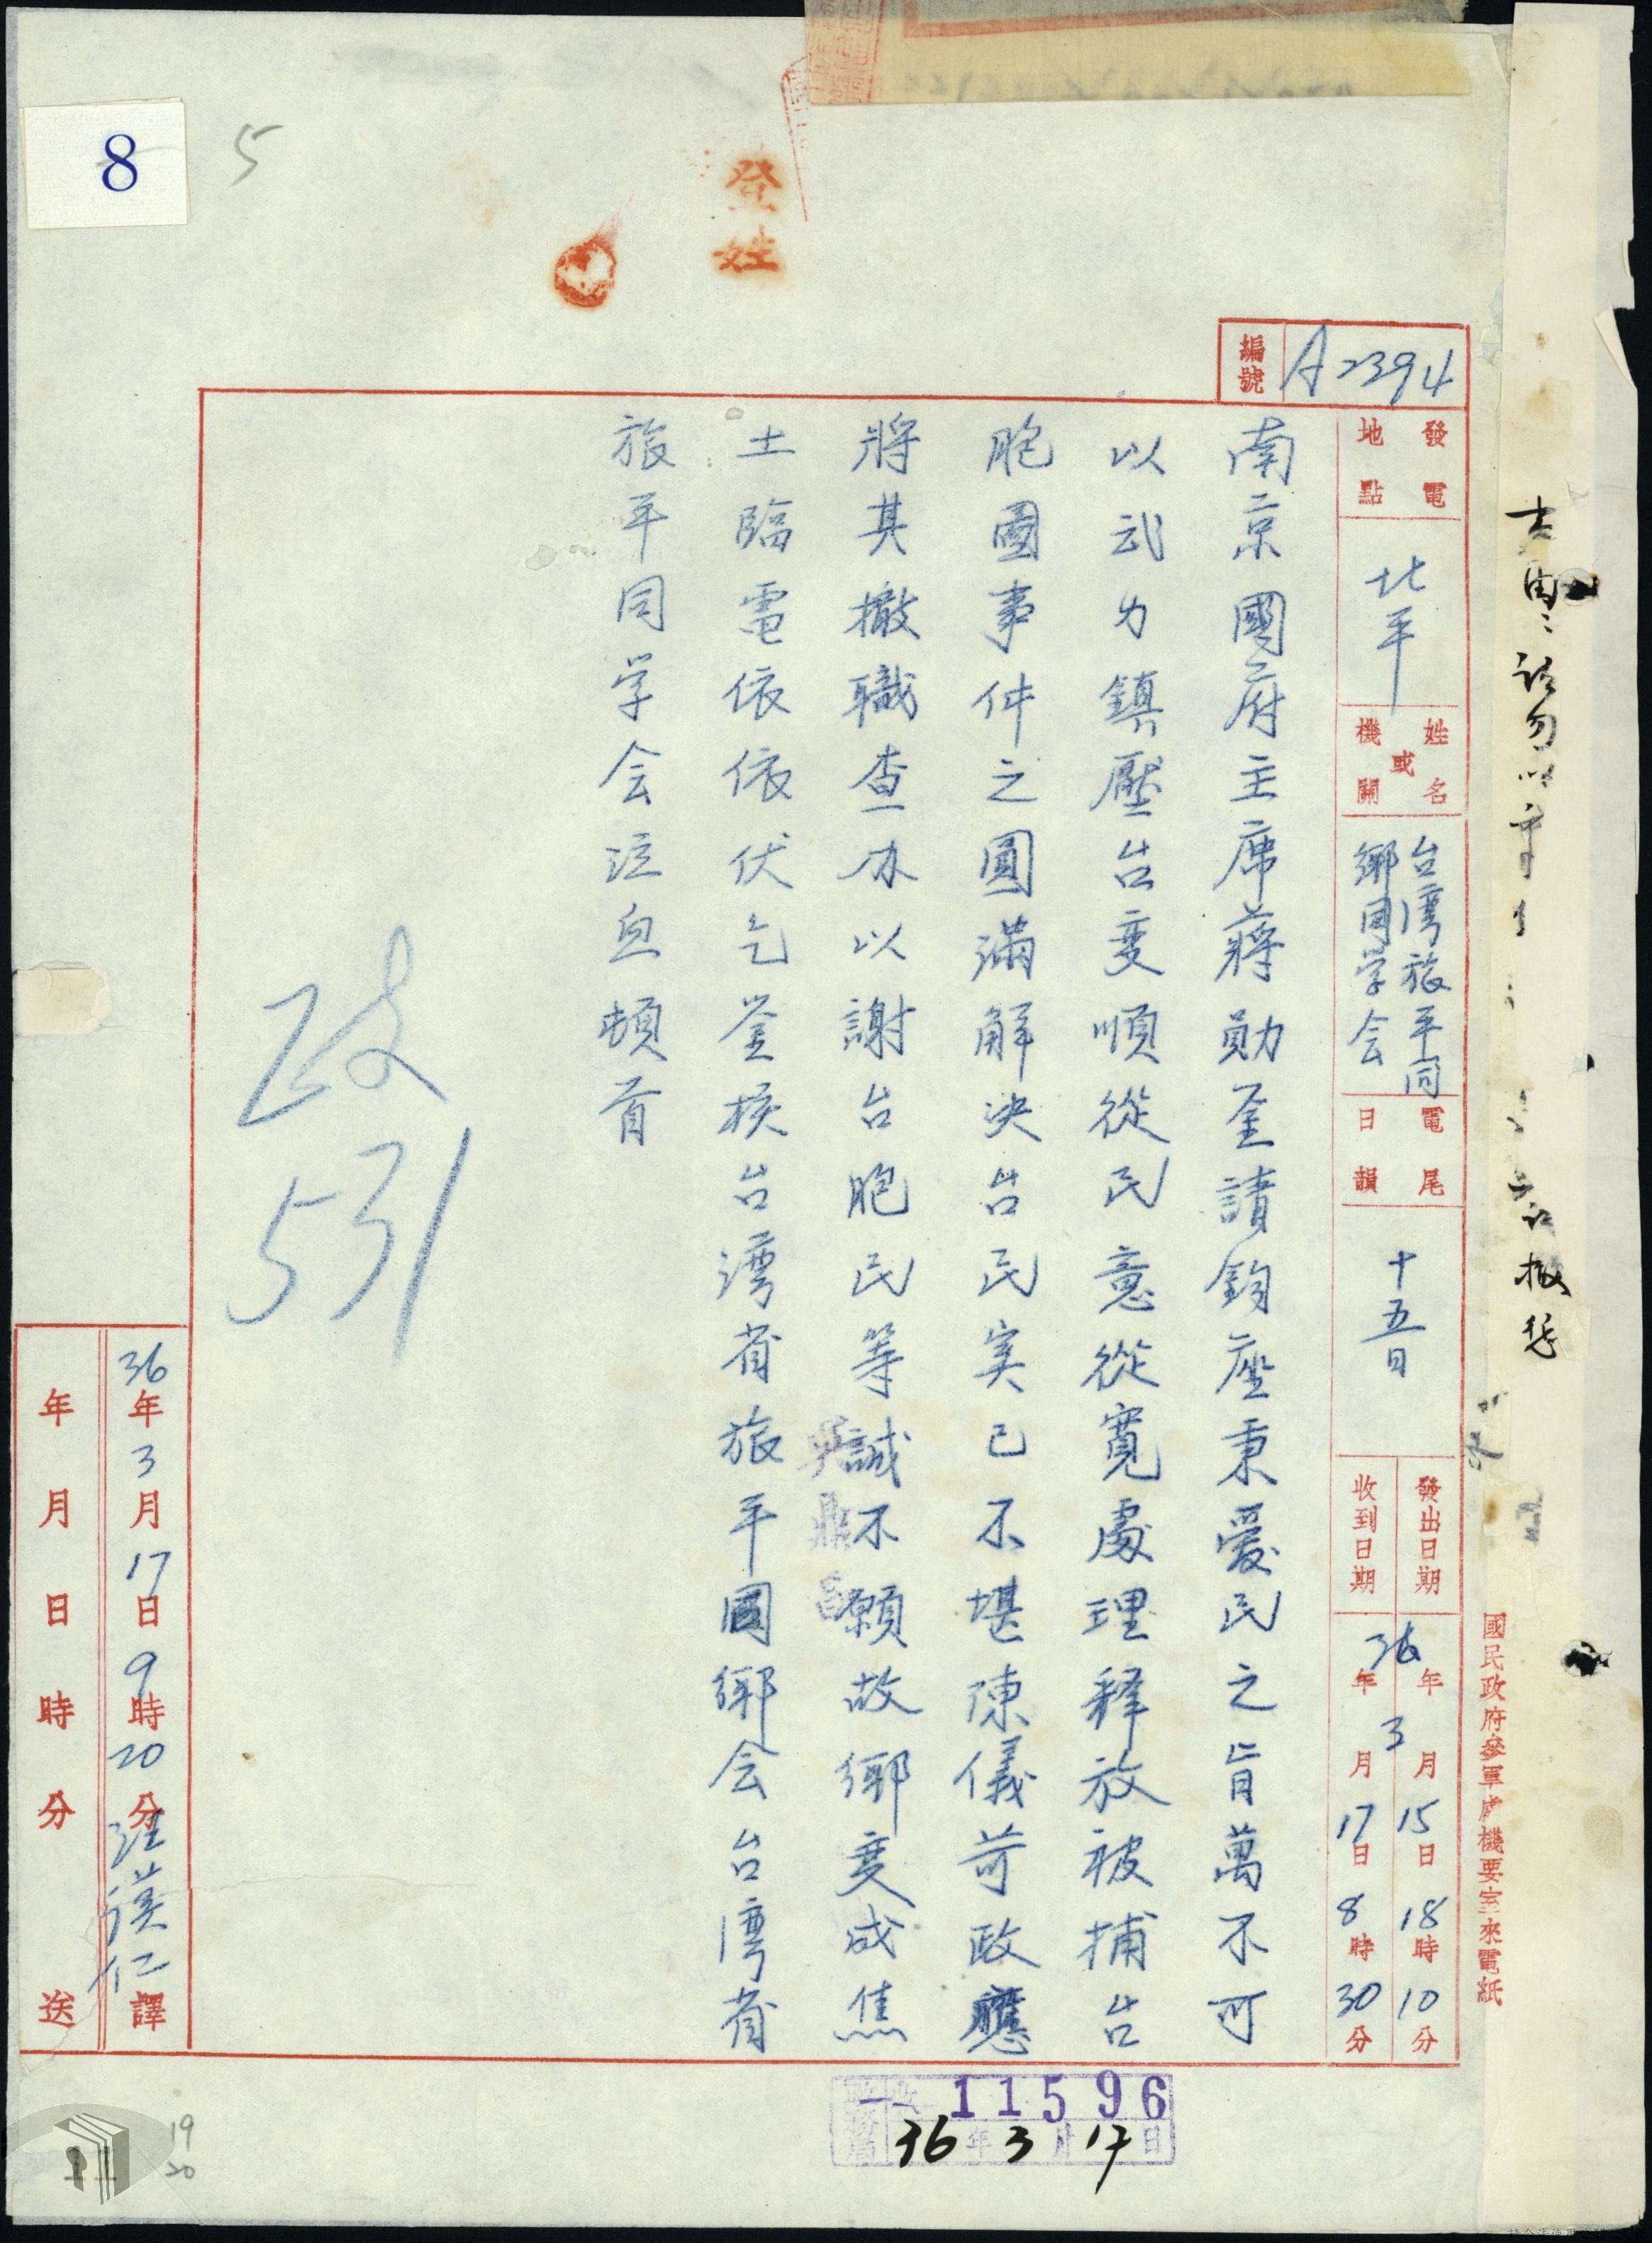 8
5
登
姓
編號 A2394
發電地點 北平
姓名或機關 台灣旅平同鄉同学会
電尾日韻 十五日
發出日期 36年3月15日18時10分
收到日期 36年3月17日8時30分
國民政府參軍處機要室來電紙
南京國府主席蔣勛鉴請鈞座秉愛民之旨萬不可
以武力鎮壓台变順從民意從寬處理释放被捕台
胞圖事件之圓滿解决台民实已不堪陳儀苛政應
將其撤職查办以謝台胞民等誠不願故鄉变成焦
土臨電依依伏乞鉴核台灣省旅平同鄉会台灣省
旅平同学会泣血頓首
吳鼎昌
政
531
36年3月17日9時20分 漢仁譯
年月日時分送
11596
36年3月17日
19
20